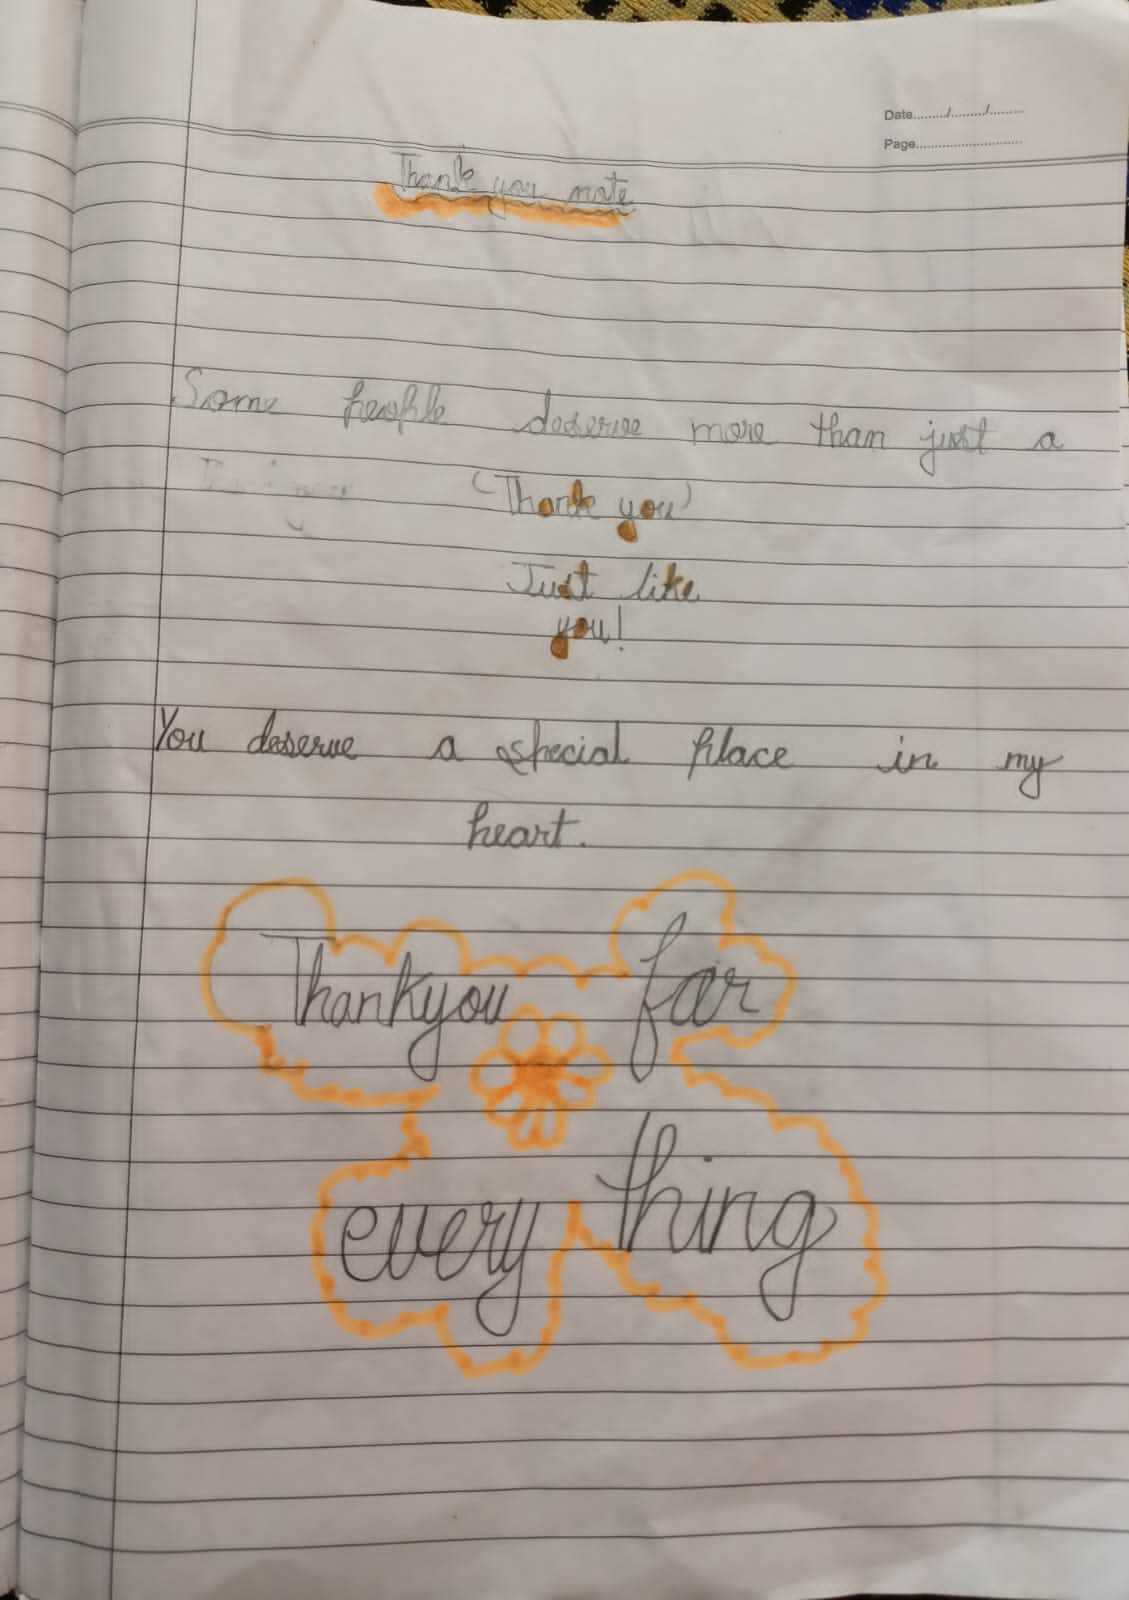 Date........./........./.........
Page............................
Thank you mate
Some people deserve more than just a
(Thank you)
Just like
you!
You deserve a special place in my
heart.
Thankyou for
every thing